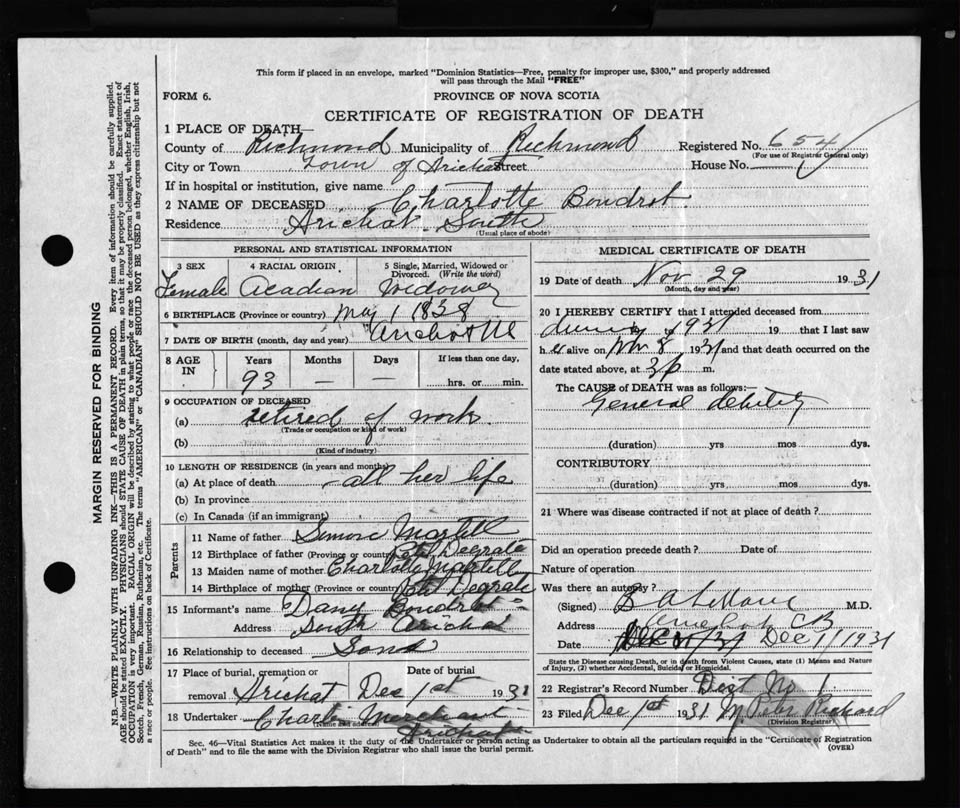 This form if placed in an envelope, marked "Dominion Statistics—Free, penalty for improper use, $300," and properly addressed
will pass through the Mail "FREE"
FORM 6.
PROVINCE OF NOVA SCOTIA
CERTIFICATE OF REGISTRATION OF DEATH
1 PLACE OF DEATH—
County of Richmond Municipality of Richmond Registered No. 654
(For use of Registrar General only)
City or Town Town of Arichat Street House No.
If in hospital or institution, give name
2 NAME OF DECEASED Charlotte Boudrot
Residence Arichat South
(Usual place of abode)
PERSONAL AND STATISTICAL INFORMATION
3 SEX 4 RACIAL ORIGIN 5 Single, Married, Widowed or Divorced. (Write the word)
Female Acadian
6 BIRTHPLACE (Province or country) May 1 1838
7 DATE OF BIRTH (month, day and year)
8 AGE IN Years Months Days If less than one day,
93 — — hrs. or min.
9 OCCUPATION OF DECEASED
(a) retired of work
(Trade or occupation or kind of work)
(b)
(Kind of industry)
10 LENGTH OF RESIDENCE (in years and months)
(a) At place of death all her life
(b) In province
(c) In Canada (if an immigrant)
Parents
11 Name of father Simon
12 Birthplace of father (Province or country) Petit Degrat
13 Maiden name of mother Charlotte
14 Birthplace of mother (Province or country) Petit Degrat
15 Informant's name Boudrot
Address South Arichat
16 Relationship to deceased
17 Place of burial, cremation or removal Arichat Date of burial Dec 1st 1931
18 Undertaker Merchant
Arichat
MEDICAL CERTIFICATE OF DEATH
19 Date of death Nov 29 1931
(Month, day and year)
20 I HEREBY CERTIFY that I attended deceased from
1931 19 that I last saw
h er alive on Nov 8 1931 and that death occurred on the
date stated above, at 3 p m.
The CAUSE of DEATH was as follows:—
General debility
(duration) yrs mos dys.
CONTRIBUTORY
(duration) yrs mos dys.
21 Where was disease contracted if not at place of death?
Did an operation precede death? Date of
Nature of operation
Was there an autopsy?
(Signed) M.D.
Address CB
Date Dec 1/1931
State the Disease causing Death, or in death from Violent Causes, state (1) Means and Nature
of Injury, (2) whether Accidental, Suicidal or Homicidal.
22 Registrar's Record Number Dist No 1
23 Filed Dec 1st 1931 Richard
(Division Registrar)
Sec. 46—Vital Statistics Act makes it the duty of the Undertaker or person acting as Undertaker to obtain all the particulars required in the "Certificate of Registration
of Death" and to file the same with the Division Registrar who shall issue the burial permit.
(OVER)
MARGIN RESERVED FOR BINDING
N.B.—WRITE PLAINLY WITH UNFADING INK—THIS IS A PERMANENT RECORD. Every item of information should be carefully supplied.
AGE should be stated EXACTLY. PHYSICIANS should STATE CAUSE OF DEATH in plain terms, so that it may be properly classified. Exact statement of
OCCUPATION is very important. RACIAL ORIGIN will be described by stating to what people or race the deceased person belonged, whether English, Irish,
Scotch, French, German, Russian, Ruthenian, etc. The terms "AMERICAN" or "CANADIAN" SHOULD NOT BE USED as they express citizenship but not
a race or people. See instructions on back of Certificate.